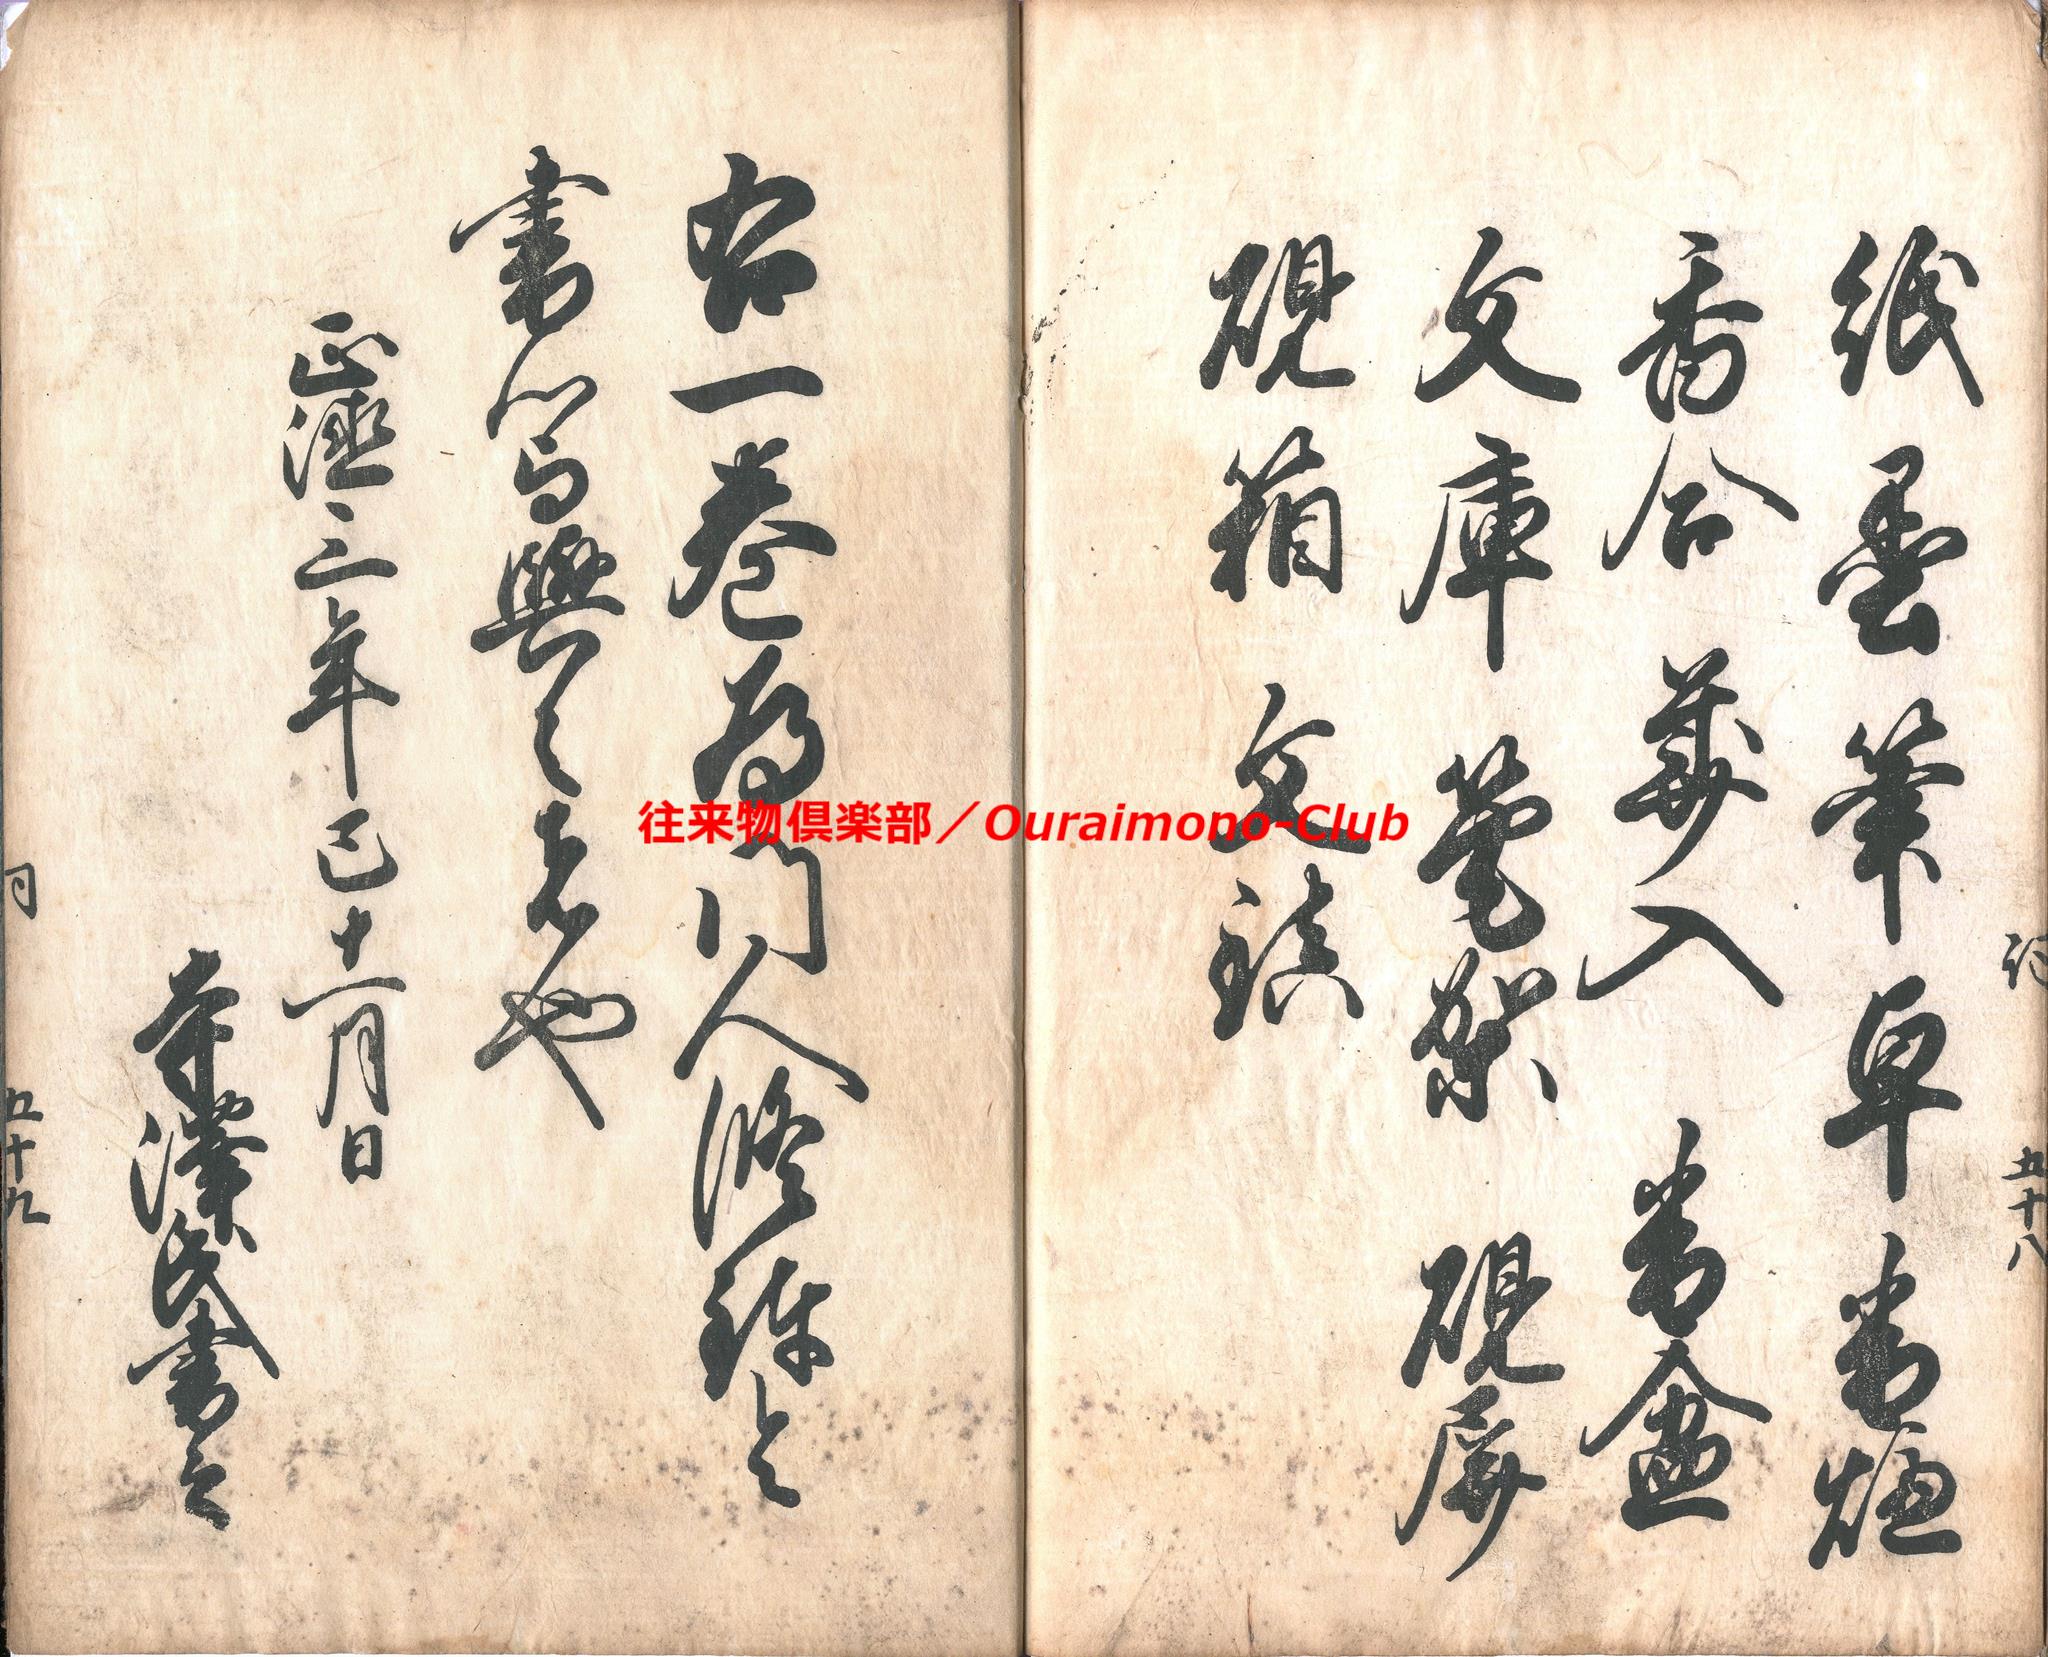 紙墨筆卓香炉
香合花入香盆
文庫筆架硯屏
硯箱文鎮
右一巻為門人修練令
書写与之者也
正徳三年巳十一月日
寺澤氏書之
五十八
五十九
往来物倶楽部／Ouraimono-Club